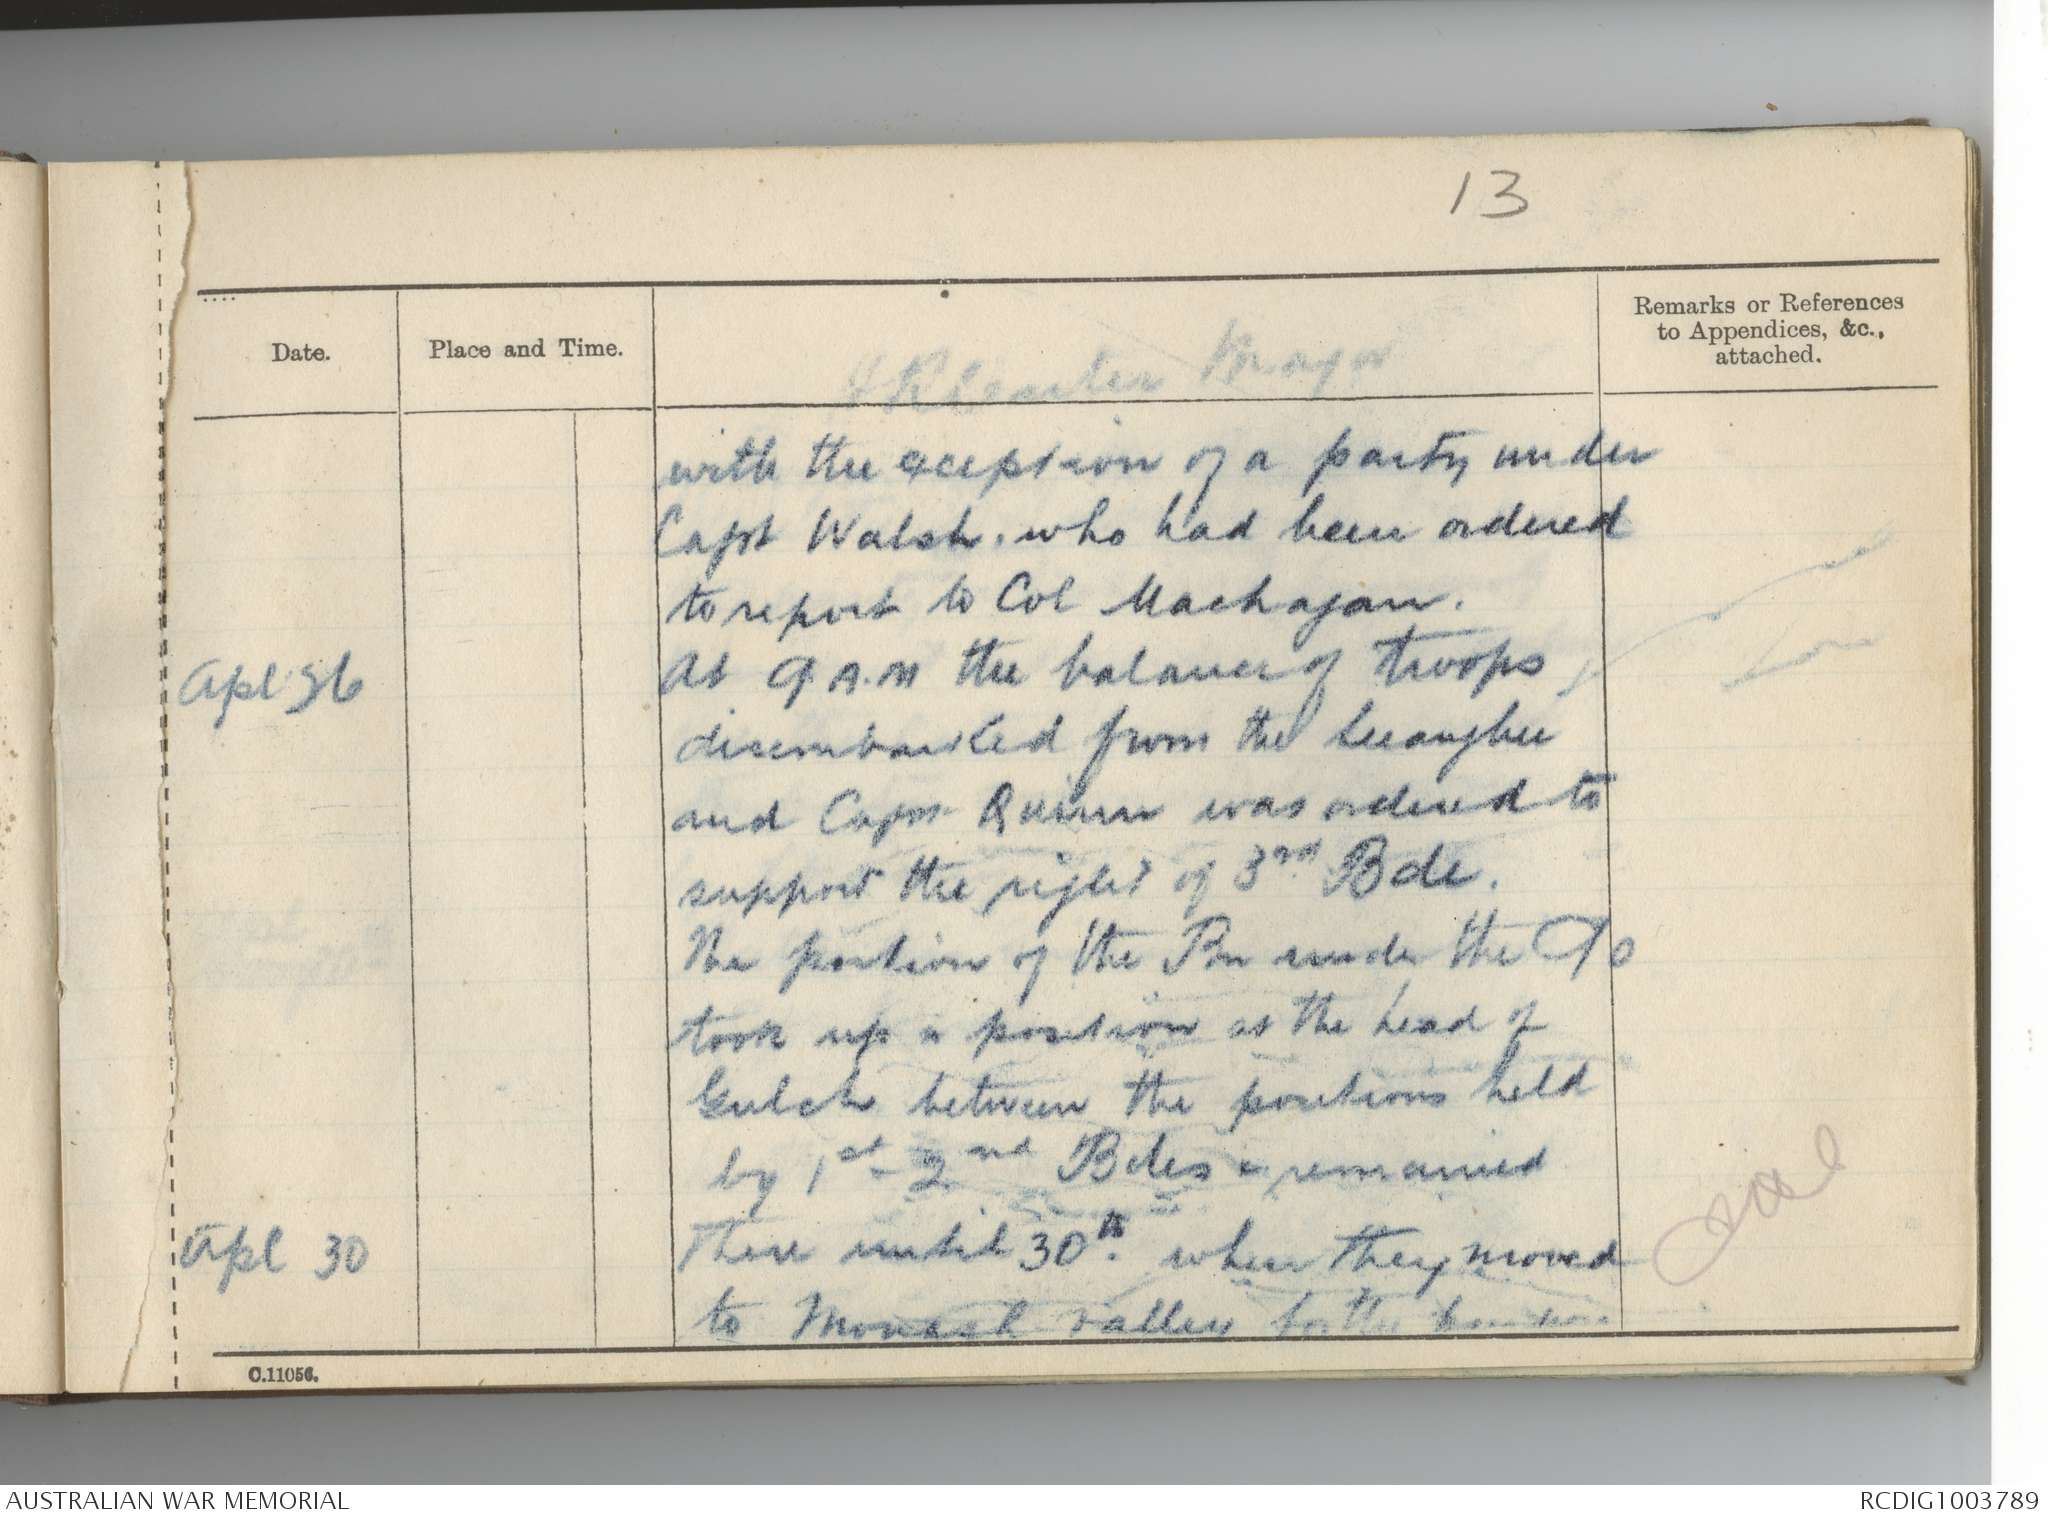 13
Date.
Place and Time.
Remarks or References
to Appendices, &c.,
attached.
Major
with the exception of a party under
Capt Walsh. who had been ordered
to report to Col Machagan.
Apl 26 At 9. A.M the balance of troops
disembarked from the Seeangbee
and Capt Quinn was ordered to
support the right of 3rd Bde.
The portion of the Bn under the CO
took up a position at the head of
Gulch between the positions held
by 1st - 2nd Bdes & remained
Apl 30 There until 30th. when they moved
to Monash valley for the
C.11056.
AUSTRALIAN WAR MEMORIAL
RCDIG1003789